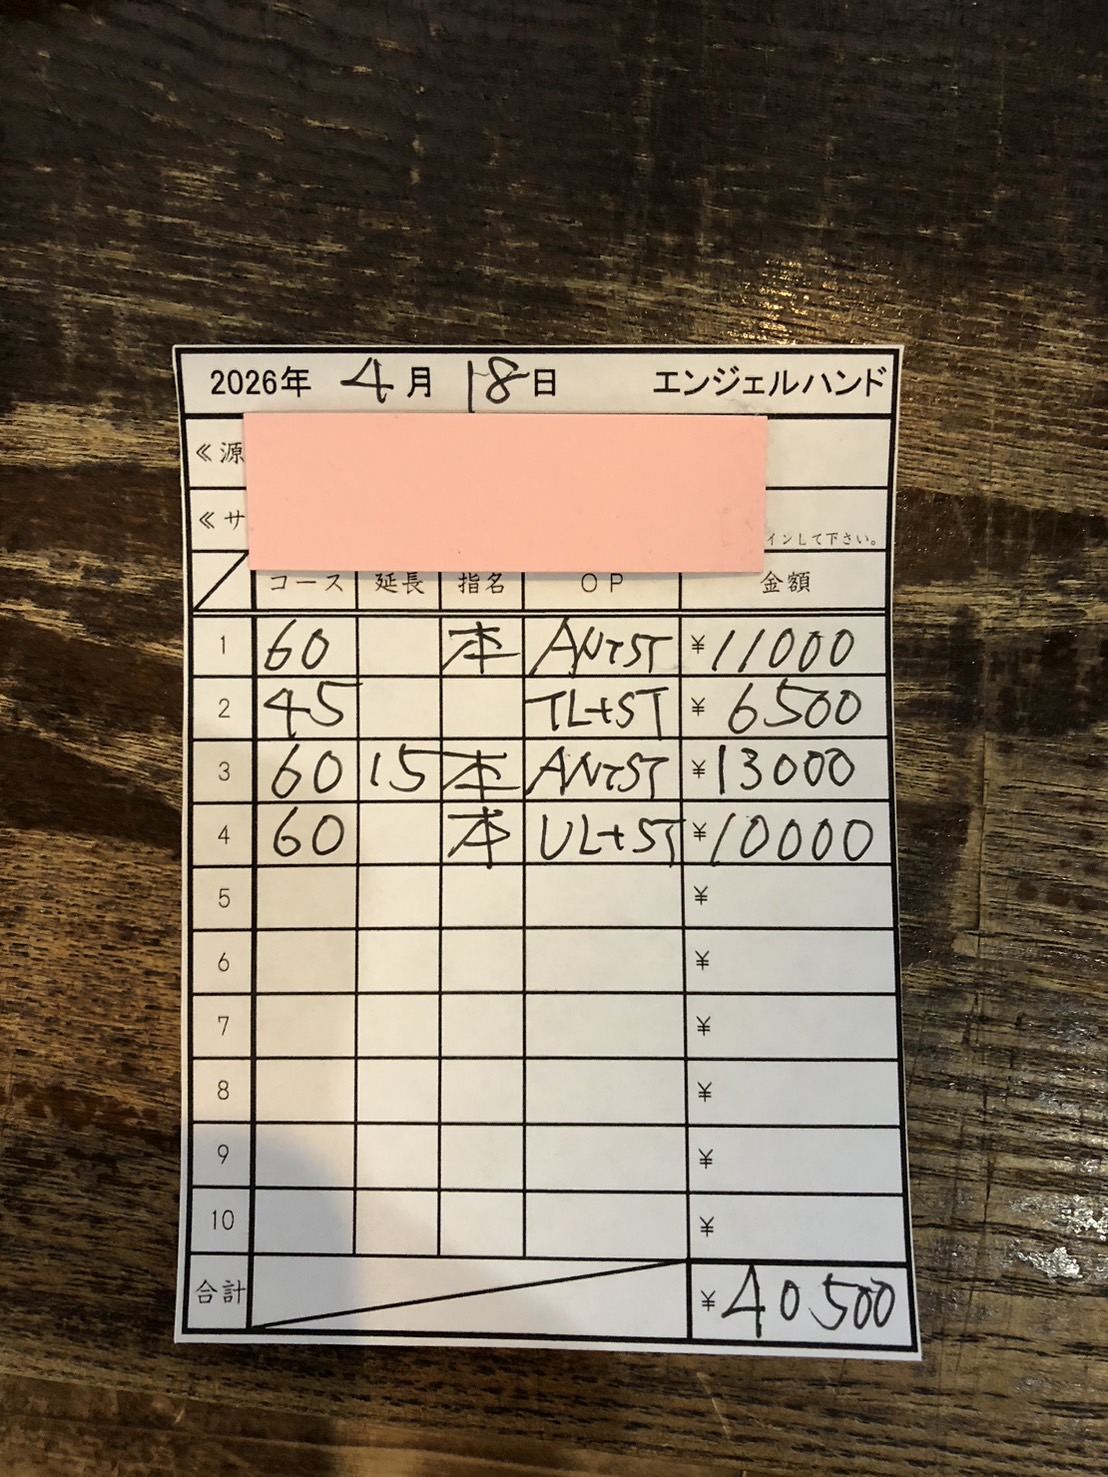 2026年 4月 18日 エンジェルハンド
≪源
≪サ
インして下さい。
コース 延長 指名 OP 金額
1 60 本 AN+ST ¥11000
2 45 TL+ST ¥6500
3 60 15 本 AN+ST ¥13000
4 60 本 UL+ST ¥10000
5 ¥
6 ¥
7 ¥
8 ¥
9 ¥
10 ¥
合計 ¥40500